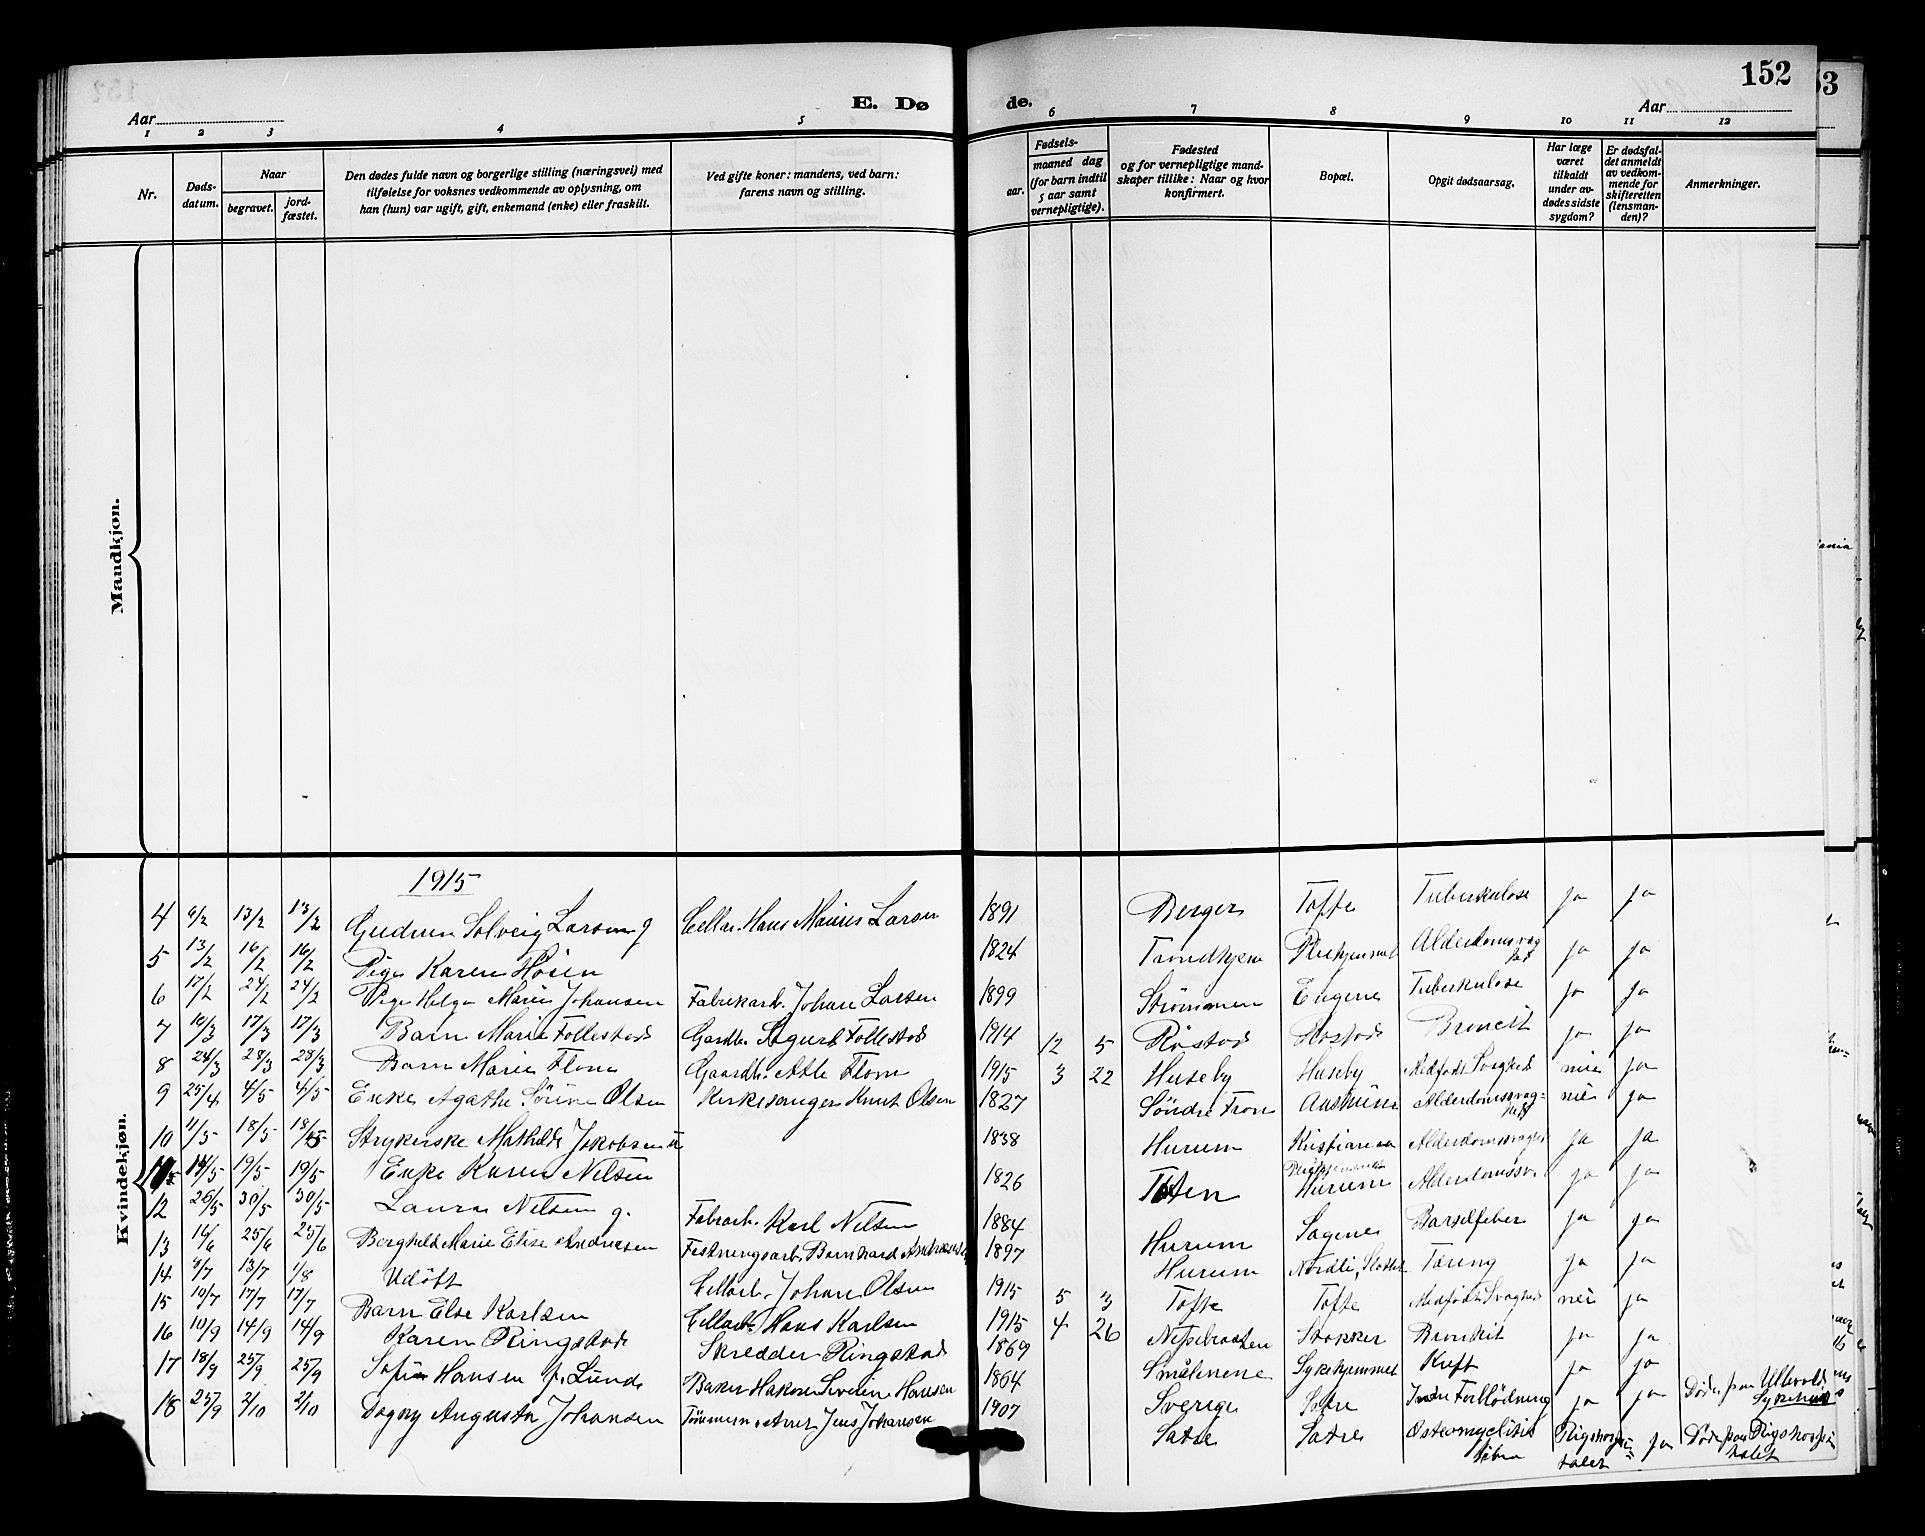 152
E. Dø
de.
Aar
Aar
1 2 3 4 5 6 7 8 9 10 11 12
Nr.
Døds-
datum.
Naar
begravet.
jord-
fæstet.
Den dødes fulde navn og borgerlige stilling (næringsvei) med
tilføielse for voksnes vedkommende av oplysning, om
han (hun) var ugift, gift, enkemand (enke) eller fraskilt.
Ved gifte koner: mandens, ved barn:
farens navn og stilling.
Fødsels-
aar.
maaned dag
(for barn indtil
5 aar samt
vernepligtige).
Fødested
og for vernepligtige mand-
skaper tillike: Naar og hvor
konfirmert.
Bopæl.
Opgit dødsaarsag.
Har læge
været
tilkaldt
under av-
dødes sidste
sygdom?
Er dødsfal-
det anmeldt
av vedkom-
mende for
skifteretten
(lensman-
den)?
Anmerkninger.
Mandkjøn.
Kvindekjøn.
1915
4 6/2 13/2 13/2 Gudrun Solveig Larsen g Cellar. Hans Marius Larsen 1891 Berger Tofte Tuberkulose ja ja
5 13/2 16/2 16/2 Pige Karen Hösen 1824 Trondhjem Pleiehjemmet Alderdomssvaghet ja ja
6 17/2 24/2 24/2 Pige Helga Marie Johansen Fabrikarb. Johan Larsen 1899 Strømmen Engene Tuberkulose ja ja
7 10/3 17/3 17/3 Barn Marie Follestad Gardbr. Sigurd Follestad 1914 12 5 Röstad Röstad Broncit ja ja
8 24/3 28/3 28/3 Barn Marie Flom Gaardbr. Atle Flom 1915 3 22 Huseby Huseby Medfødt Svaghed nei ja
9 25/4 4/5 4/5 Enke Agathe Sörine Olsen Kirkesanger Knut Olsen 1827 Söndre Fron Alderdomssvag-
het nei ja
10 11/5 18/5 18/5 Strykerske Mathilde Jakobsen u 1838 Hurum Kristiania Alderdomssvaghet ja ja
11 14/5 19/5 19/5 Enke Karen Nilsen 1826 Toten Pleiehjemmet
Hurum Alderdomssv. ja ja
12 26/5 30/5 30/5 Laura Nilsen g. Fabrarb. Karl Nilsen 1884 Hurum Sagene Barselfeber ja ja
13 16/6 25/6 25/6 Berghild Marie Elise Andresen Festningsarb. Bernhard Andresen 1897 Hurum Nordli, Slottet Tæring ja ja
14 9/7 13/7 1/8 Udöbt Cellarb. Johan Olsen 1915 5 3 Tofte Tofte Medfødt Svaghed nei ja
15 10/7 17/7 17/7 Barn Else Karlsen Cellarb. Hans Karlsen 1915 4 26 Stokker Bronkit ja ja
16 10/9 14/9 14/9 Karen Ringstad Skredder Ringstad 1869 Smålenene Sykehjemmet Kreft ja ja
17 18/9 25/9 25/9 Sofie Hansen f. Lunde Baker Hakon Severin Hansen 1864 Sverige Sætre Indre Forblödning ja ja Döde paa Ullevold
Sykehus
18 25/9 2/10 2/10 Dagny Augusta Johansen Tömmerm. Jens Johansen 1907 Sætre Sætre Osteomyelitis
tibia Rigshospi-
talet ja Döde paa Rigshospi-
talet